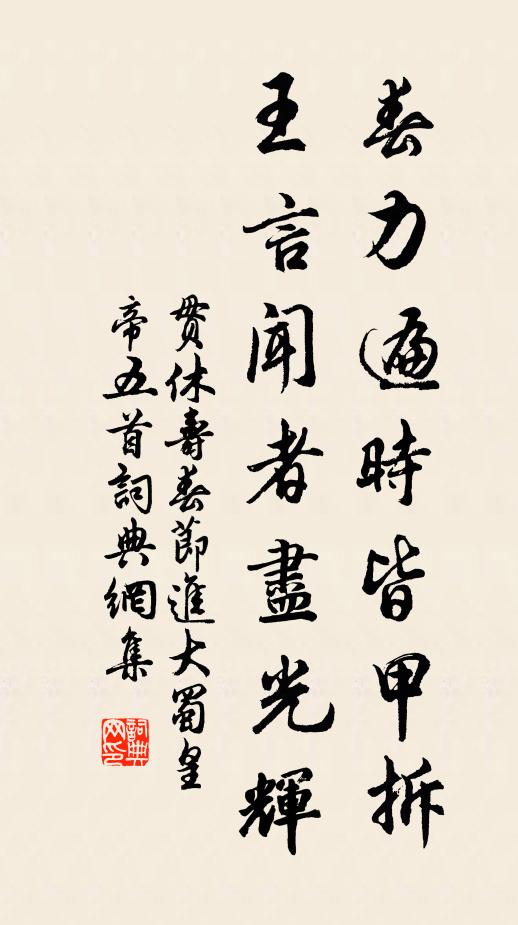 春力遍時皆甲拆
王言聞者盡光輝
貫休壽春節進大蜀皇
帝五首詞典網集
詞典网印